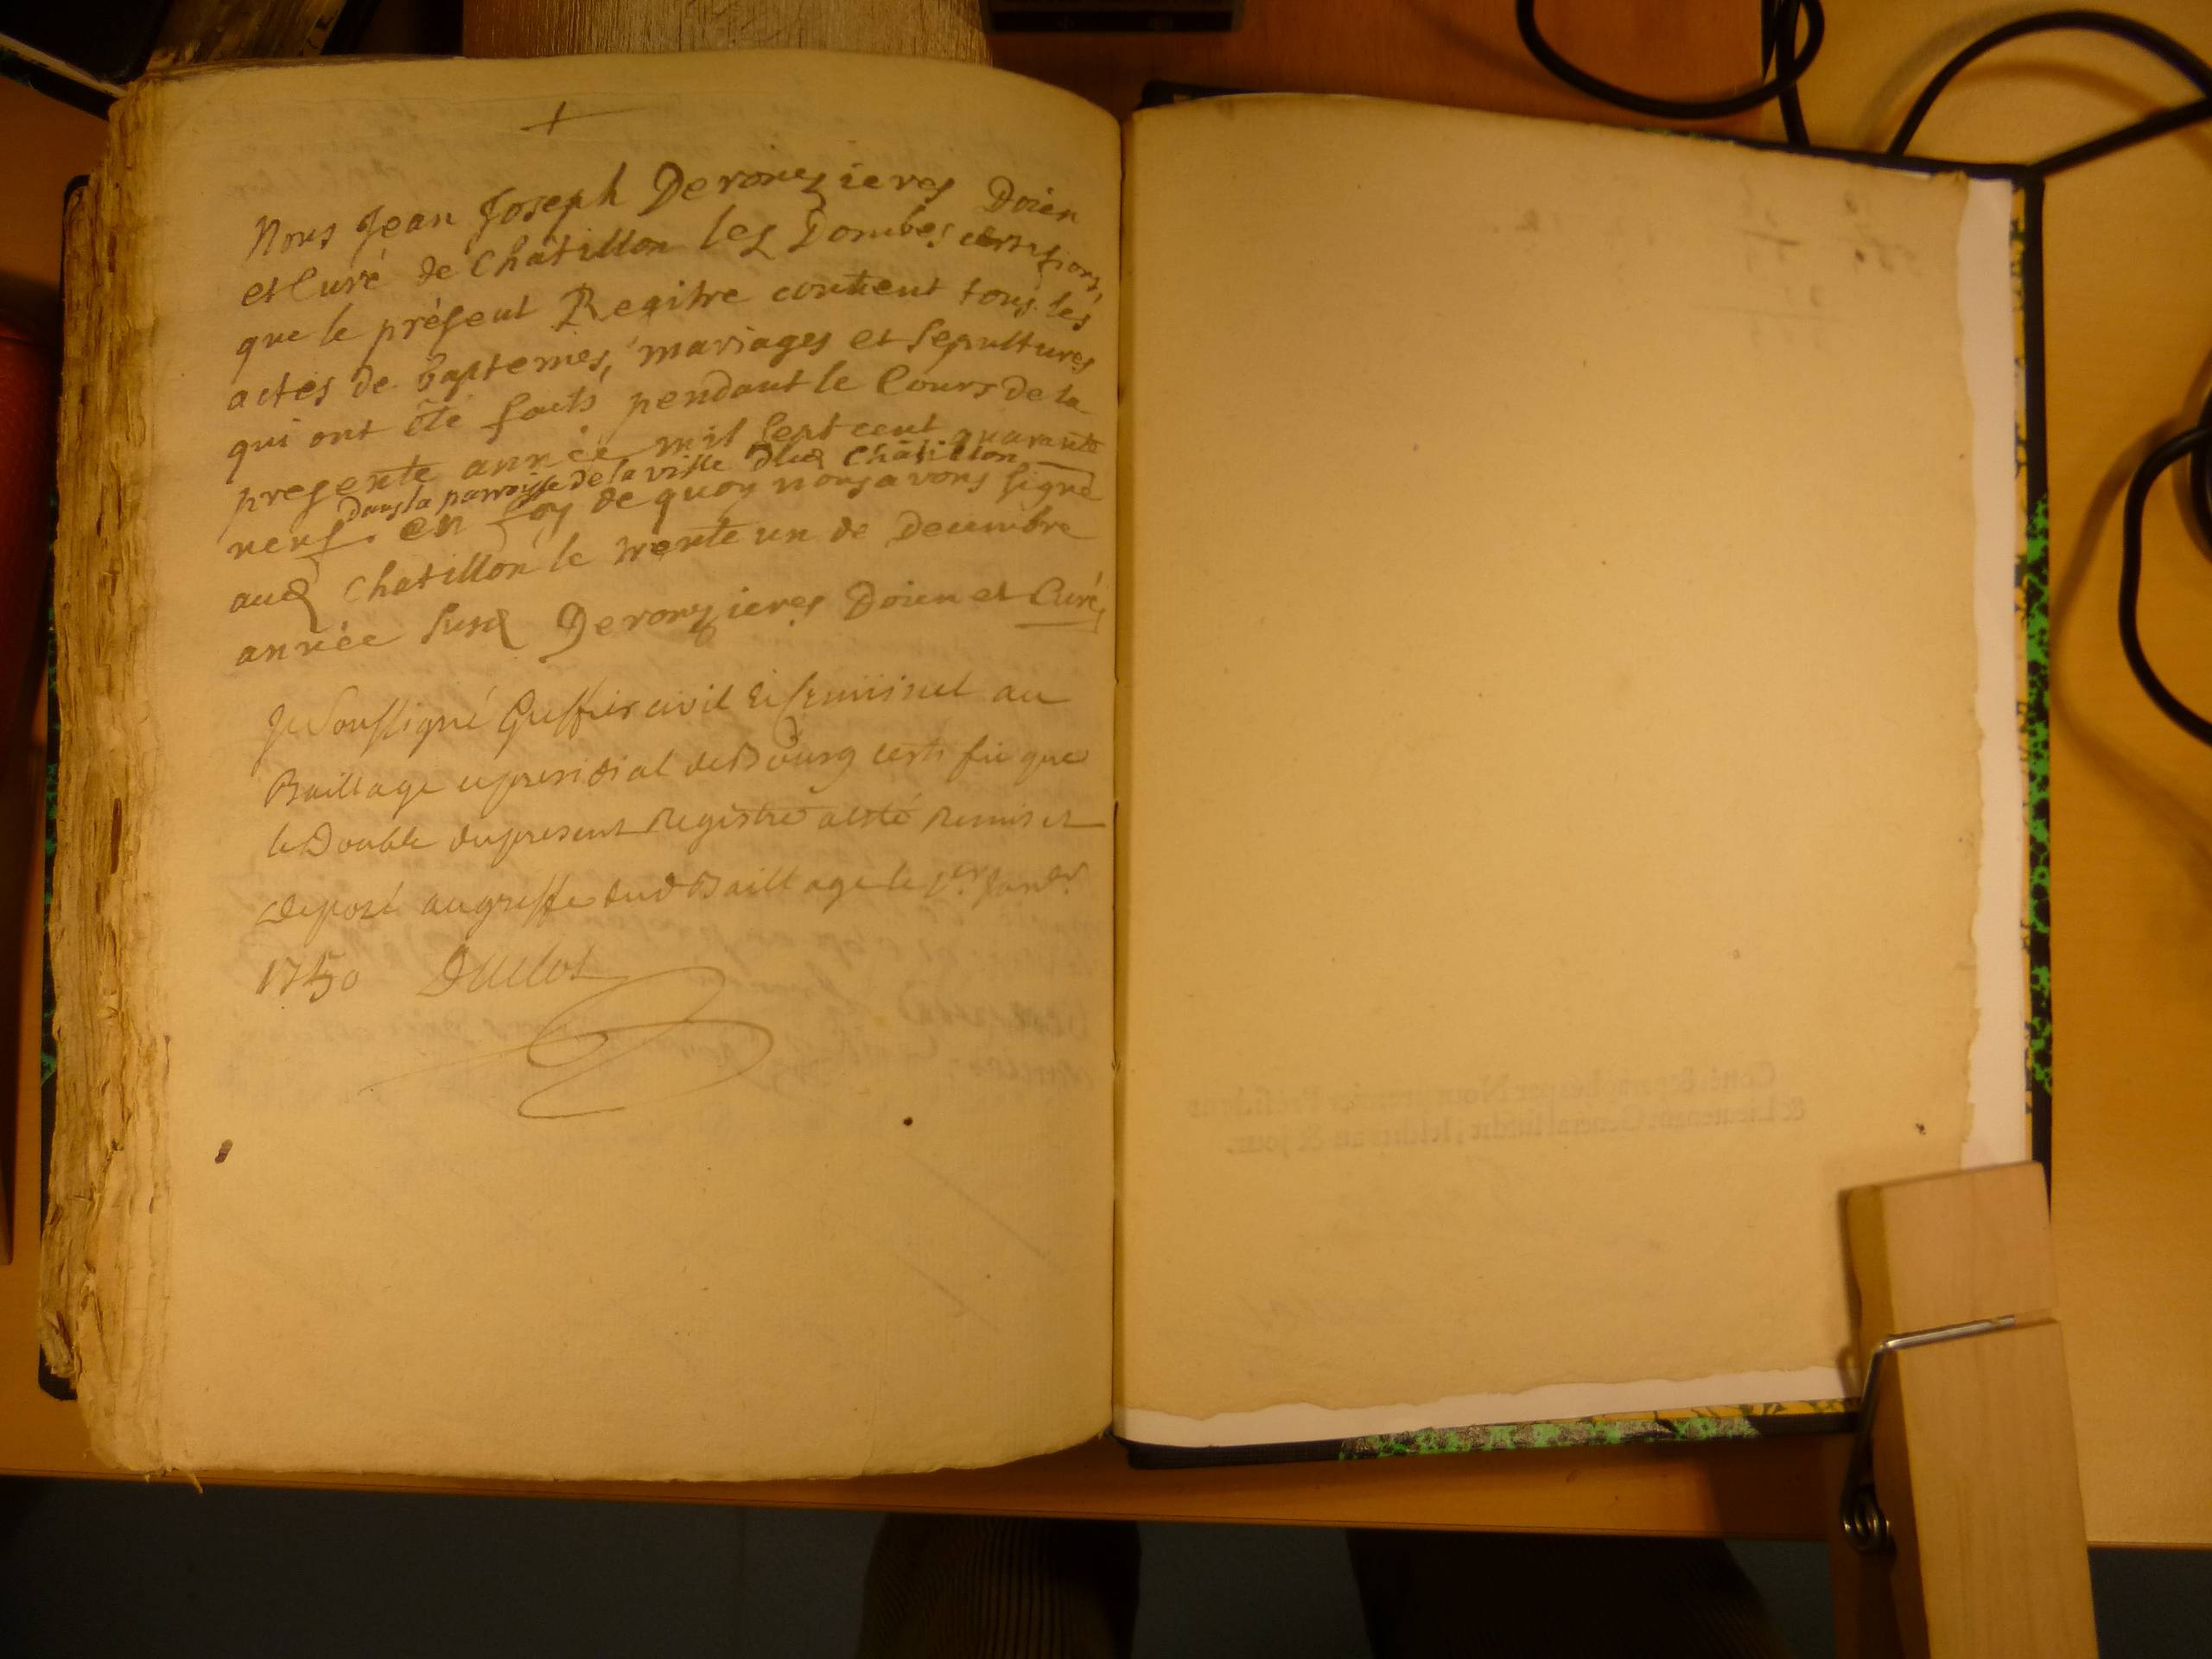 +
Nous Jean Joseph Deronzieres Doien
et Curé de Châtillon les Dombes certifions,
que le présent Regitre contient tous les
actes de baptemes, mariages et sepultures
qui ont été faits pendant le Cours de la
presente année mil sept cent quarante
dans la parroisse de la ville dud Châtillon
neuf. en foy de quoy nous avons signé
aud Chatillon le trente un de Decembre
année susd Deronzieres Doien et Curé,
Je soussigné Greffier civil et criminel au
Baillage et presidial de Bourg certifie que
le Double du present Registre a esté Remis et
deposé au greffe dud Baillage le 1er Janer
1750 Duclos